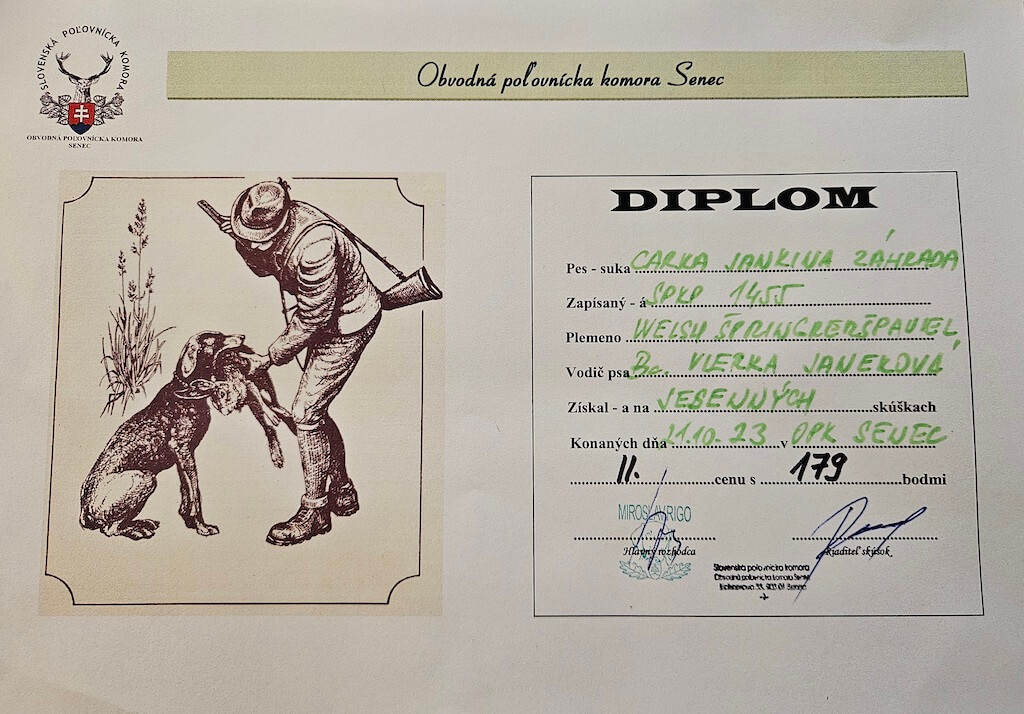 SLOVENSKÁ POĽOVNÍCKA KOMORA
OBVODNÁ POĽOVNÍCKA KOMORA
SENEC
Obvodná poľovnícka komora Senec
DIPLOM
Pes - suka CARKA JANKINA ZÁHRADA
Zapísaný - á ŠPKP 1455
Plemeno WELSH ŠPRINGRERŠPANIEL
Vodič psa VIERKA JANEKOVÁ
Získal - a na JESENNÝCH skúškach
Konaných dňa 21.10.23 v OPK SENEC
II. cenu s 179 bodmi
MIROSLAV RIGO
Hlavný rozhodca
Riaditeľ skúšok
Slovenská poľovnícka komora
Obvodná poľovnícka komora Senec
Senec